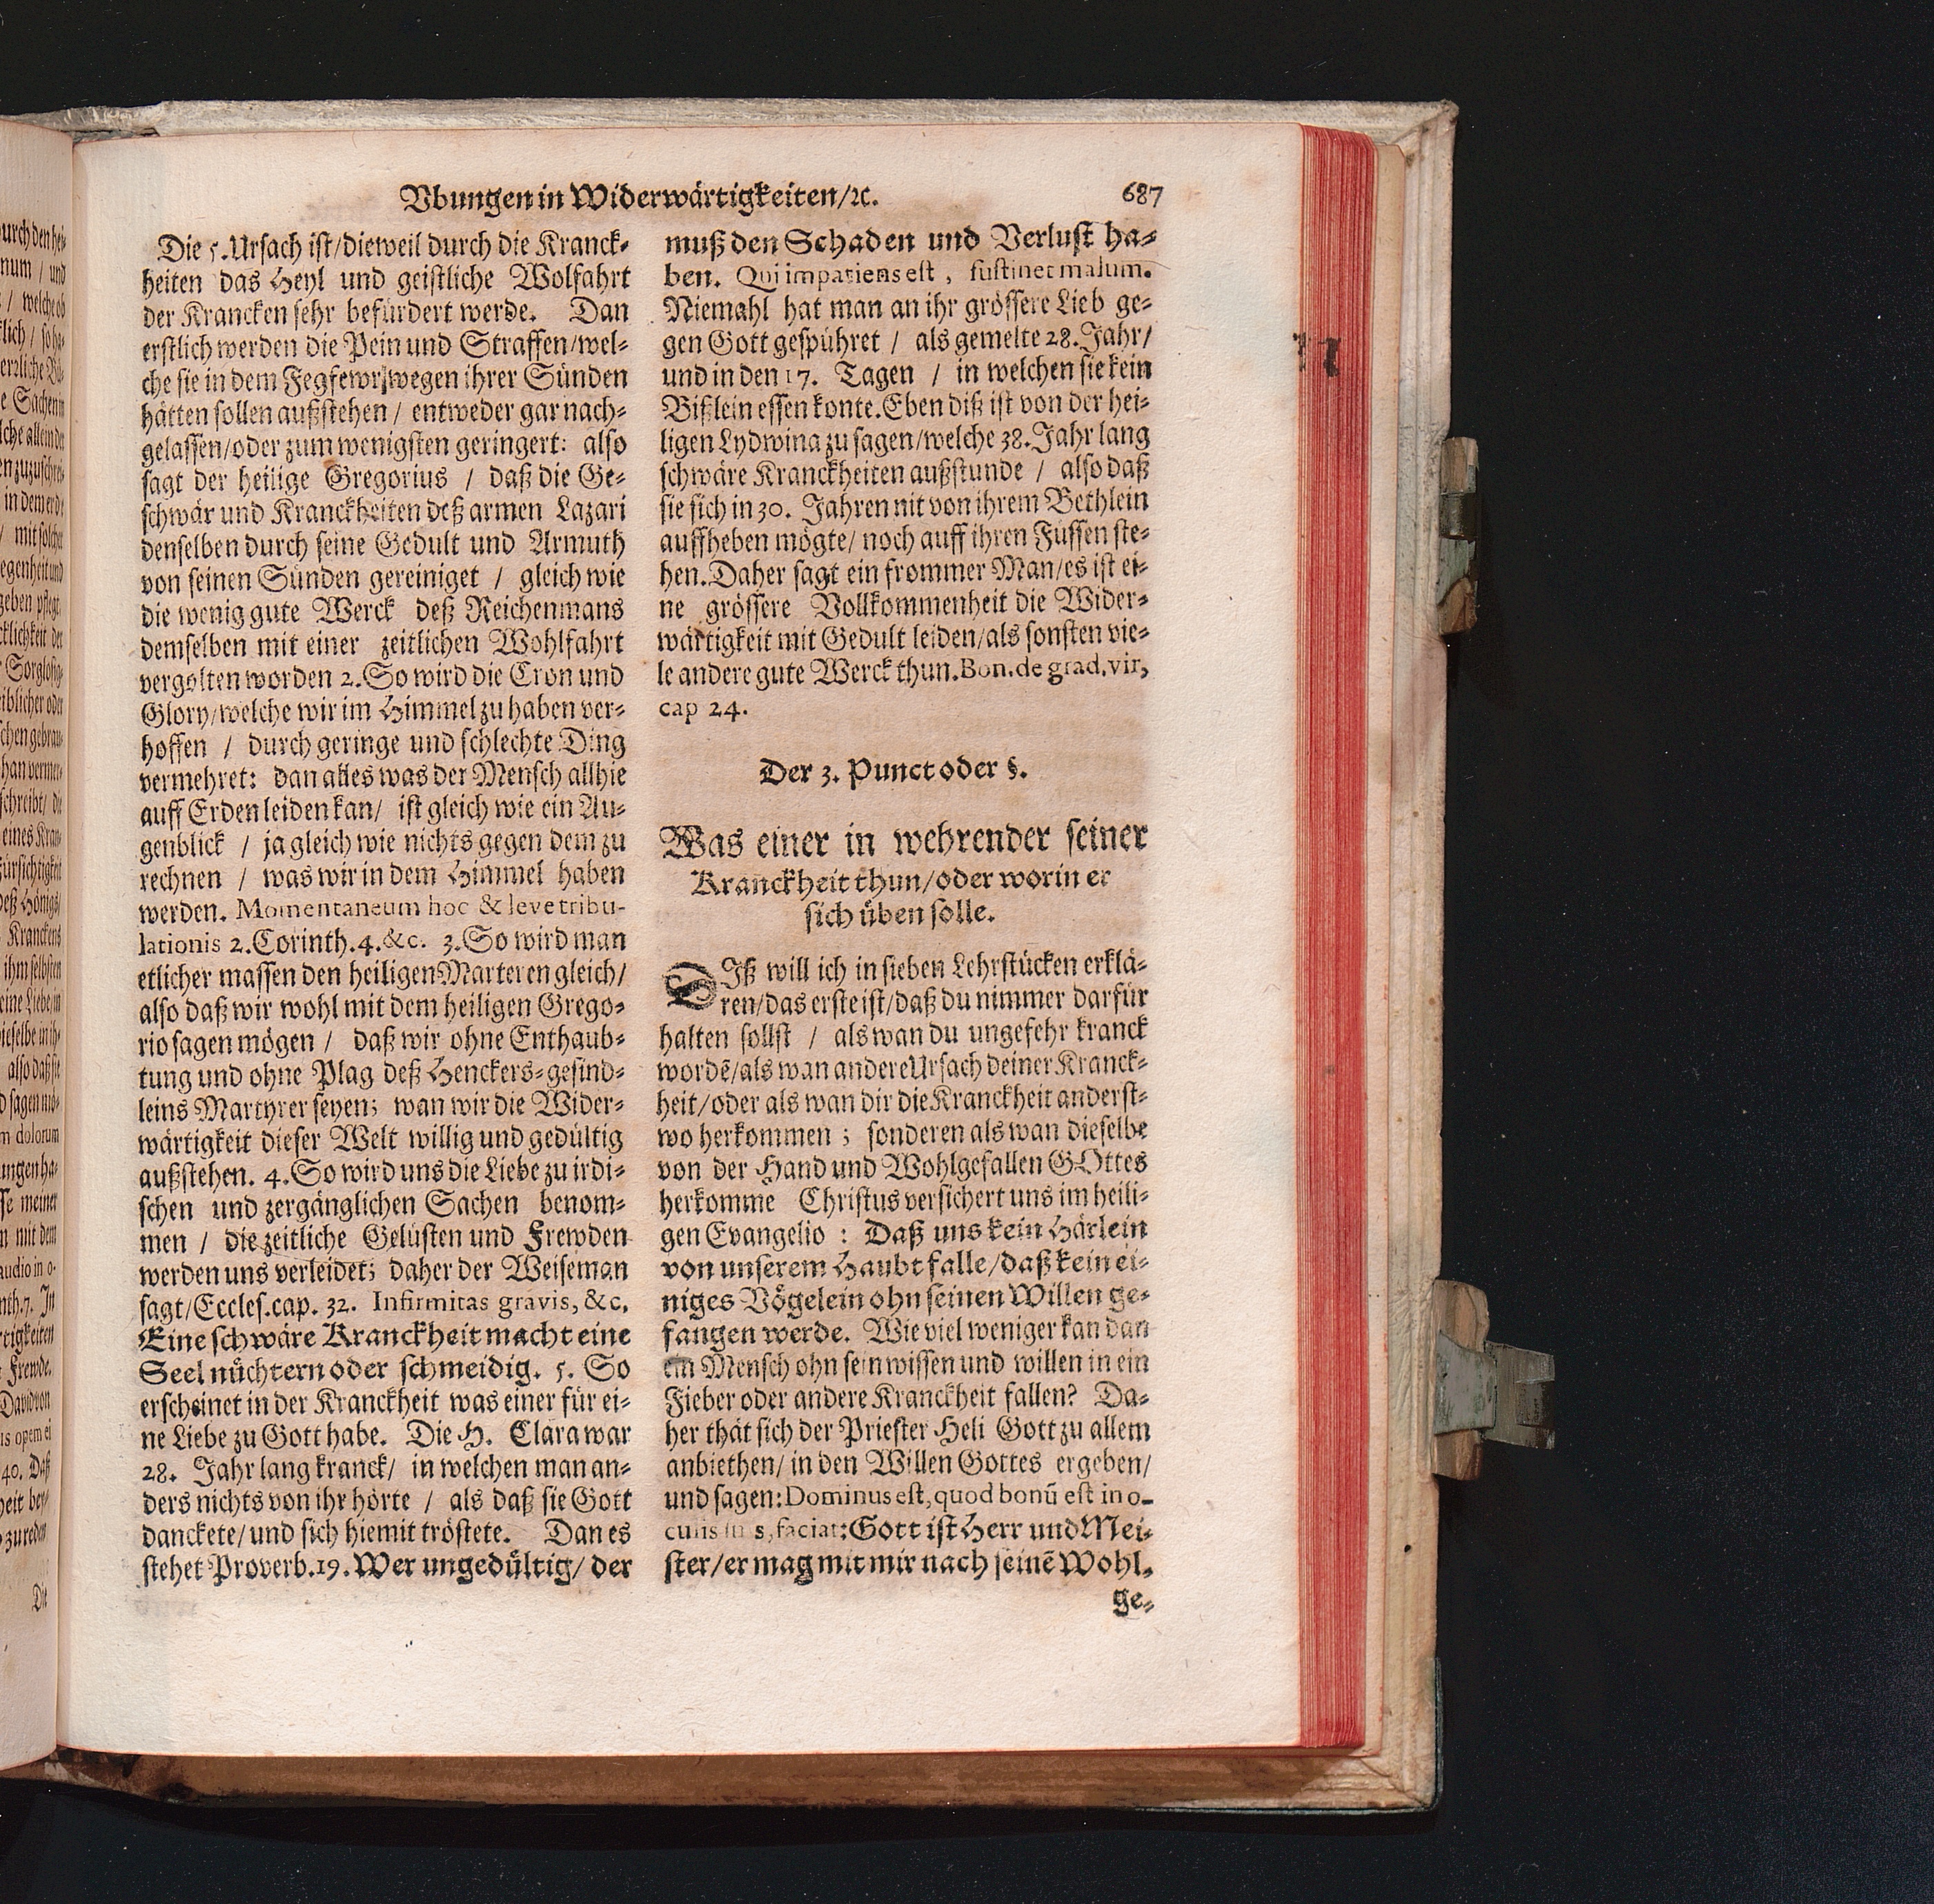 Vbungen in Widerwärtigkeiten/ꝛc. 687
Die 5. Ursach ist/dieweil durch die Kranck-
heiten das Heyl und geistliche Wolfahrt
der Krancken sehr befürdert werde. Dan
erstlich werden die Pein und Straffen/wel-
che sie in dem Fegfewr/wegen ihrer Sünden
hätten sollen außstehen/ entweder gar nach-
gelassen/oder zum wenigsten geringert: also
sagt der heilige Gregorius / daß die Ge-
schwär und Kranckheiten deß armen Lazari
denselben durch seine Gedult und Armuth
von seinen Sünden gereiniget / gleich wie
die wenig gute Werck deß Reichenmans
demselben mit einer zeitlichen Wohlfahrt
vergolten worden 2. So wird die Cron und
Glory/welche wir im Himmel zu haben ver-
hoffen / durch geringe und schlechte Ding
vermehret: dan alles was der Mensch allhie
auff Erden leiden kan/ ist gleich wie ein Au-
genblick / ja gleich wie nichts gegen dem zu
rechnen / was wir in dem Himmel haben
werden. Momentaneum hoc & leve tribu-
lationis 2. Corinth. 4. &c. 3. So wird man
etlicher massen den heiligen Marteren gleich/
also daß wir wohl mit dem heiligen Grego-
rio sagen mögen / daß wir ohne Enthaub-
tung und ohne Plag deß Henckers-gesind-
leins Martyrer seyen; wan wir die Wider-
wärtigkeit dieser Welt willig und gedültig
außstehen. 4. So wird uns die Liebe zu irdi-
schen und zergänglichen Sachen benom-
men / die zeitliche Gelüsten und Frewden
werden uns verleidet; daher der Weiseman
sagt/Eccles. cap. 32. Infirmitas gravis, &c.
Eine schwäre Kranckheit macht eine
Seel nüchtern oder schmeidig. 5. So
erscheinet in der Kranckheit was einer für ei-
ne Liebe zu Gott habe. Die H. Clara war
28. Jahr lang kranck/ in welchen man an-
ders nichts von ihr hörte / als daß sie Gott
danckete/und sich hiemit tröstete. Dan es
stehet Proverb. 19. Wer ungedültig/ der
muß den Schaden und Verlust ha-
ben. Qui impatiens est, sustinet malum.
Niemahl hat man an ihr grössere Lieb ge-
gen Gott gespühret / als gemelte 28. Jahr/
und in den 17. Tagen / in welchen sie kein
Bißlein essen konte. Eben diß ist von der hei-
ligen Lydwina zu sagen/welche 38. Jahr lang
schwäre Kranckheiten außstunde / also daß
sie sich in 30. Jahren nit von ihrem Bethlein
auffheben mögte/ noch auff ihren Füssen ste-
hen. Daher sagt ein frommer Man/es ist ei-
ne grössere Vollkommenheit die Wider-
wärtigkeit mit Gedult leiden/als sonsten vie-
le andere gute Werck thun. Bon. de grad. vir,
cap 24.
Der 3. Punct oder §.
Was einer in wehrender seiner
Kranckheit thun/oder worin er
sich üben solle.
DIß will ich in sieben Lehrstücken erklä-
ren/das erste ist/daß du nimmer darfür
halten sollst / als wan du ungefehr kranck
wordẽ/als wan andere Ursach deiner Kranck-
heit/oder als wan dir die Kranckheit anderst-
wo herkommen; sonderen als wan dieselbe
von der Hand und Wohlgefallen GOttes
herkomme Christus versichert uns im heili-
gen Evangelio : Daß uns kein Härlein
von unserem Haubt falle/daß kein ei-
niges Vögelein ohn seinen Willen ge-
fangen werde. Wie viel weniger kan dan
ein Mensch ohn sein wissen und willen in ein
Fieber oder andere Kranckheit fallen? Da-
her thät sich der Priester Heli Gott zu allem
anbiethen/ in den Willen Gottes ergeben/
und sagen: Dominus est, quod bonũ est in o-
culis suis, faciat: Gott ist Herr und Mei-
ster/er mag mit mir nach seinẽ Wohl-
ge-